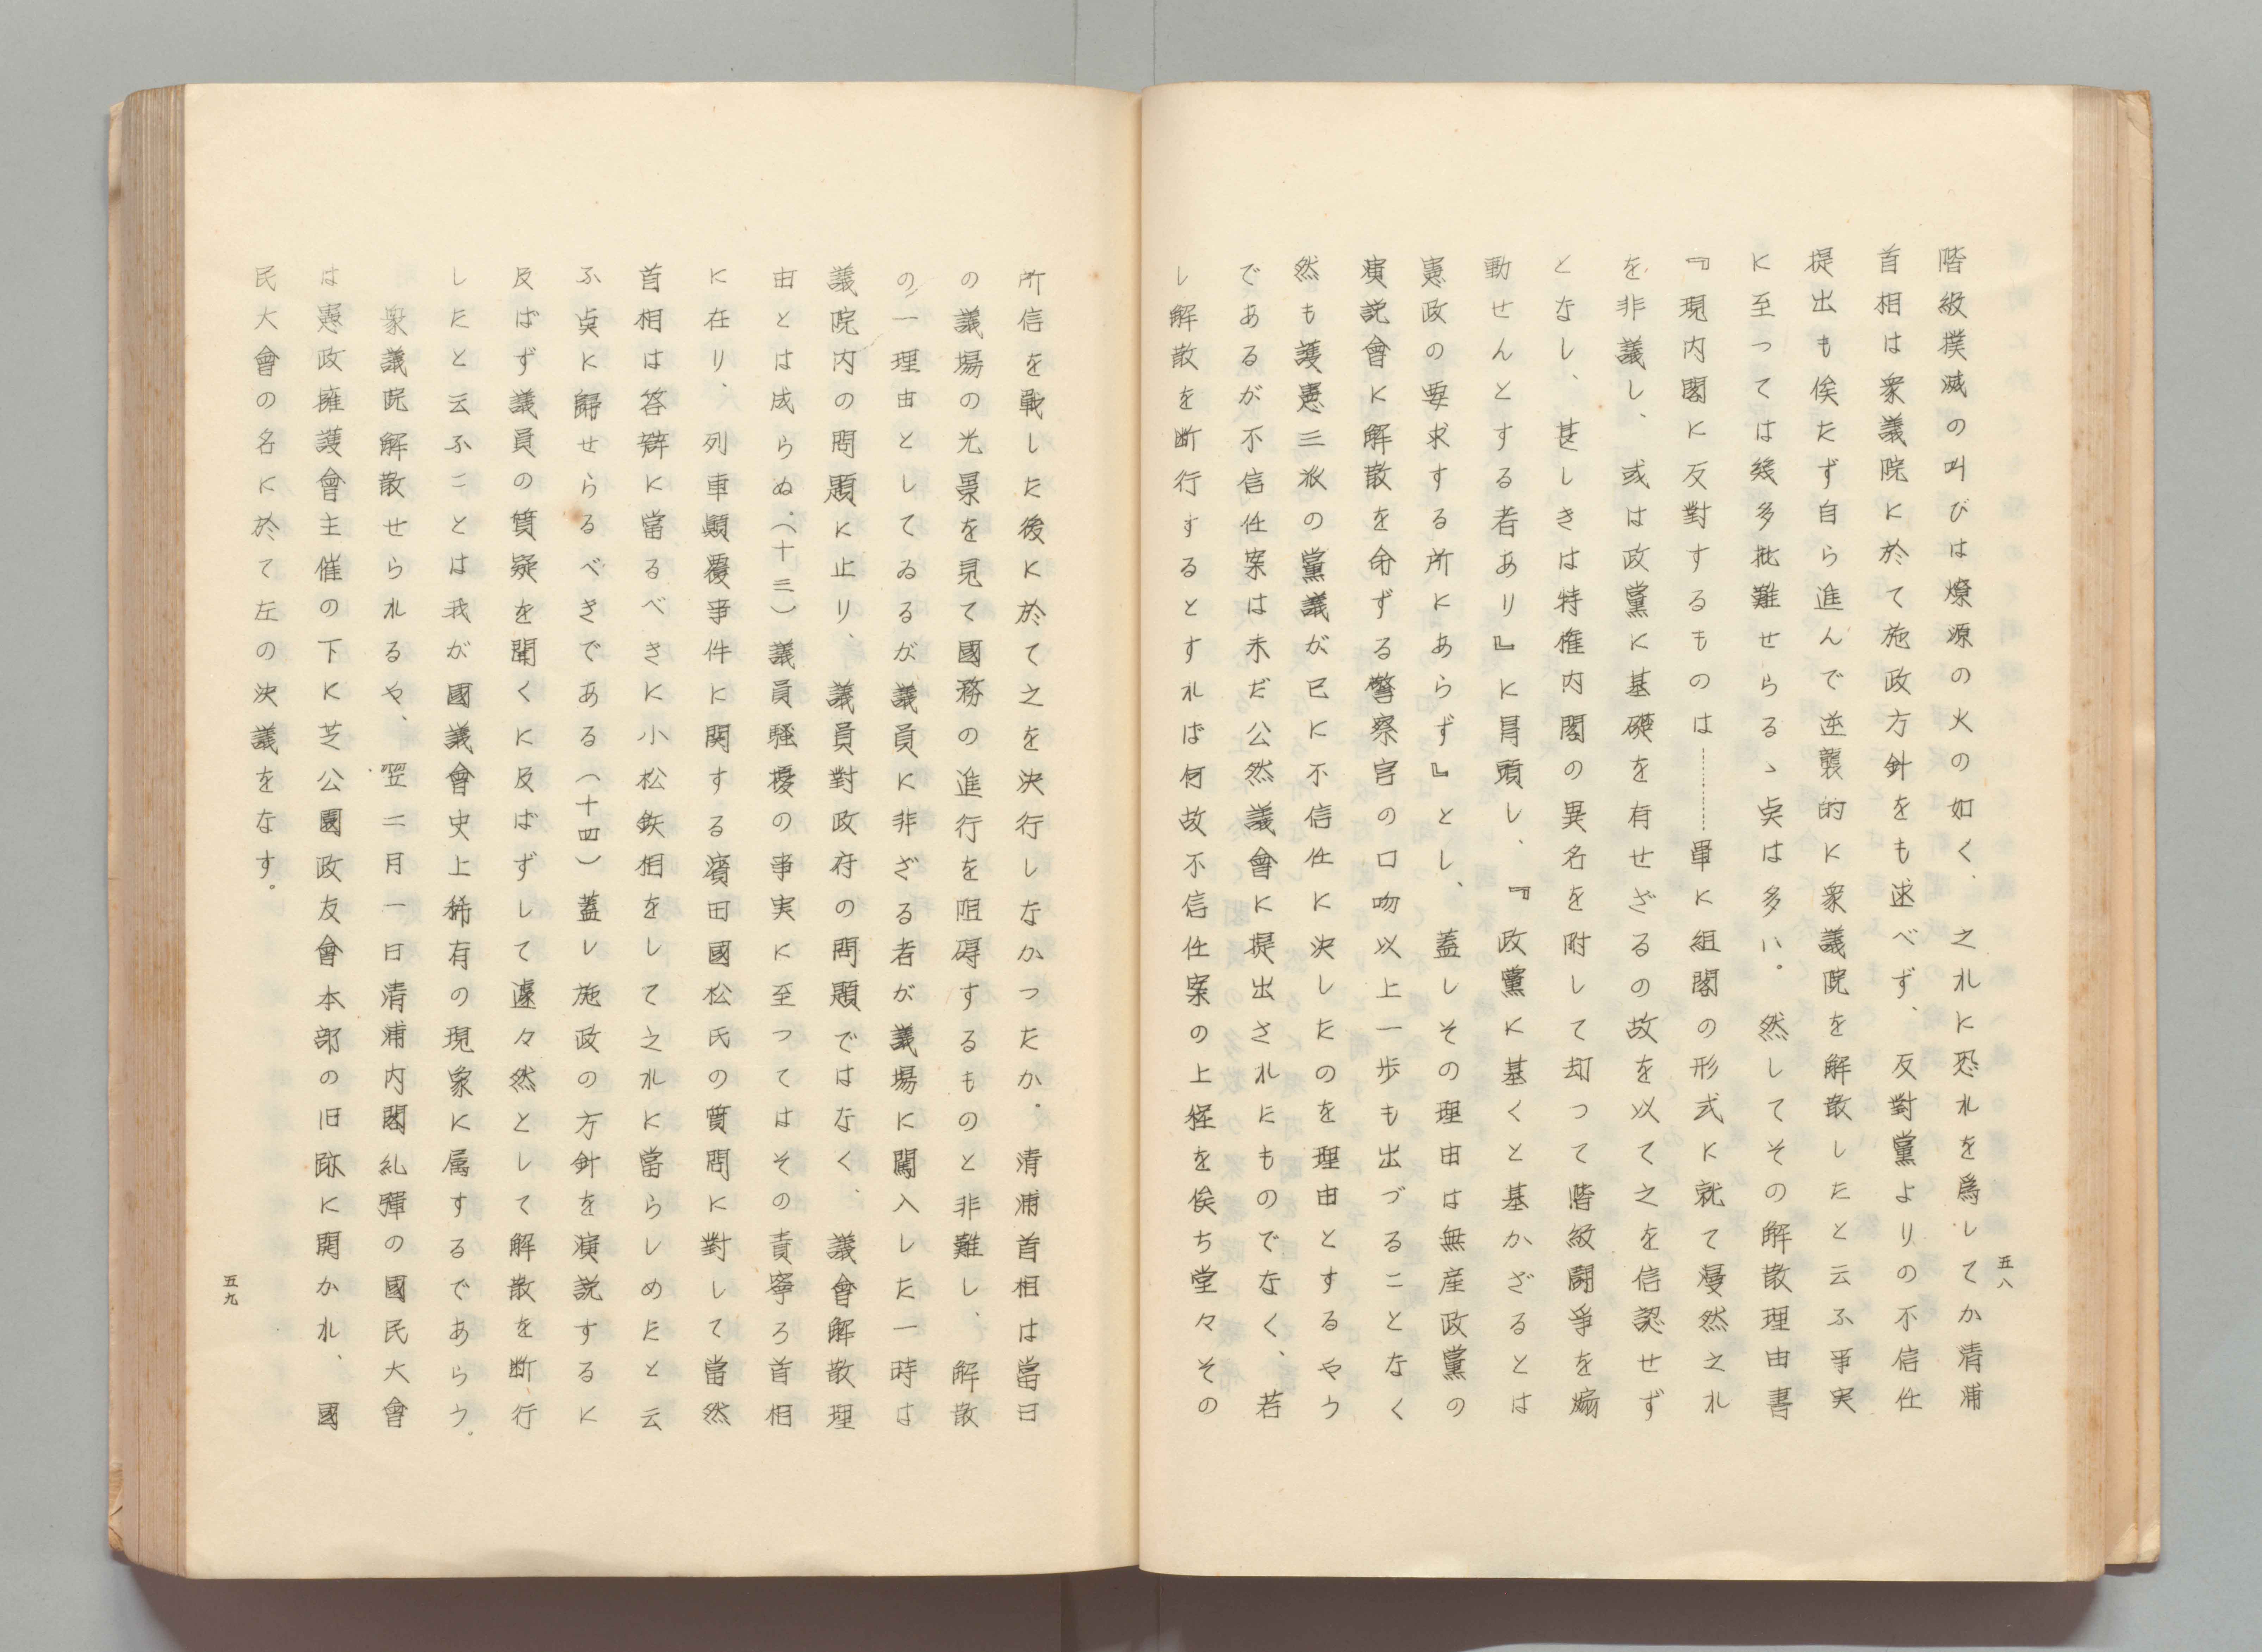 階級撲滅の叫びは燎源の火の如く、之れに恐れを爲してか清浦
首相は衆議院に於て施政方針をも述べず、反對黨よりの不信任
提出も俟たず自ら進んで逆襲的に衆議院を解散したと云ふ事実
に至っては幾多批難せらるゝ点は多い。然してその解散理由書
『現内閣に反對するものは………單に組閣の形式に就て漫然之れ
を非議し、或は政黨に基礎を有せざるの故を以て之を信認せず
となし、甚しきは特権内閣の異名を附して却つて階級闘爭を煽
動せんとする者あり』に冒頭し、『政黨に基くと基かざるとは
憲政の要求する所にあらず』とし、蓋しその理由は無産政黨の
演説會に解散を命ずる警察官の口吻以上一歩も出づることなく
然も護憲三派の黨議が已に不信任に決したのを理由とするやう
であるが不信任案は未だ公然議會に提出されにものでなく、若
し解散を断行するとすれば何故不信任案の上程を俟ち堂々その
五八
所信を戰した後に於て之を決行しなかつたか。清浦首相は當日
の議場の光景を見て國務の進行を阻碍するものと非難し、解散
の一理由としてゐるが議員に非ざる者が議場に闖入した一時は
議院内の問題に止り、議員對政府の問題ではなく、議會解散理
由とは成らぬ。(十三)議員騒擾の事実に至つてはその責寧ろ首相
に在り、列車顛覆事件に関する濱田國松氏の質問に對して當然
首相は答辯に當るべきに小松鉄相をして之れに當らしめたと云
ふ点に歸せらるべきである(十四)蓋し施政の方針を演説するに
反ばず議員の質疑を聞くに反ばずして遽々然として解散を断行
したと云ふことは我が國議會史上稀有の現象に属するであらう。
衆議院解散せられるや、翌二月一日清浦内閣糺彈の國民大會
は憲政擁護會主催の下に芝公園政友會本部の旧跡に開かれ、國
民大會の名に於て左の決議をなす。
五九